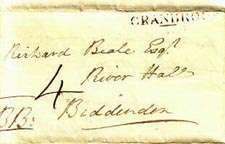 CRANBROO
Richard Beale Esqr.
4
River Hall
BB:
Biddenden